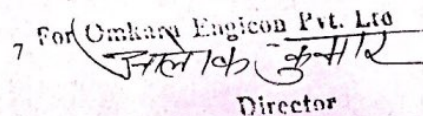 7 For Omkara Engicon Pvt. Ltd
आलोक कुमार
Director